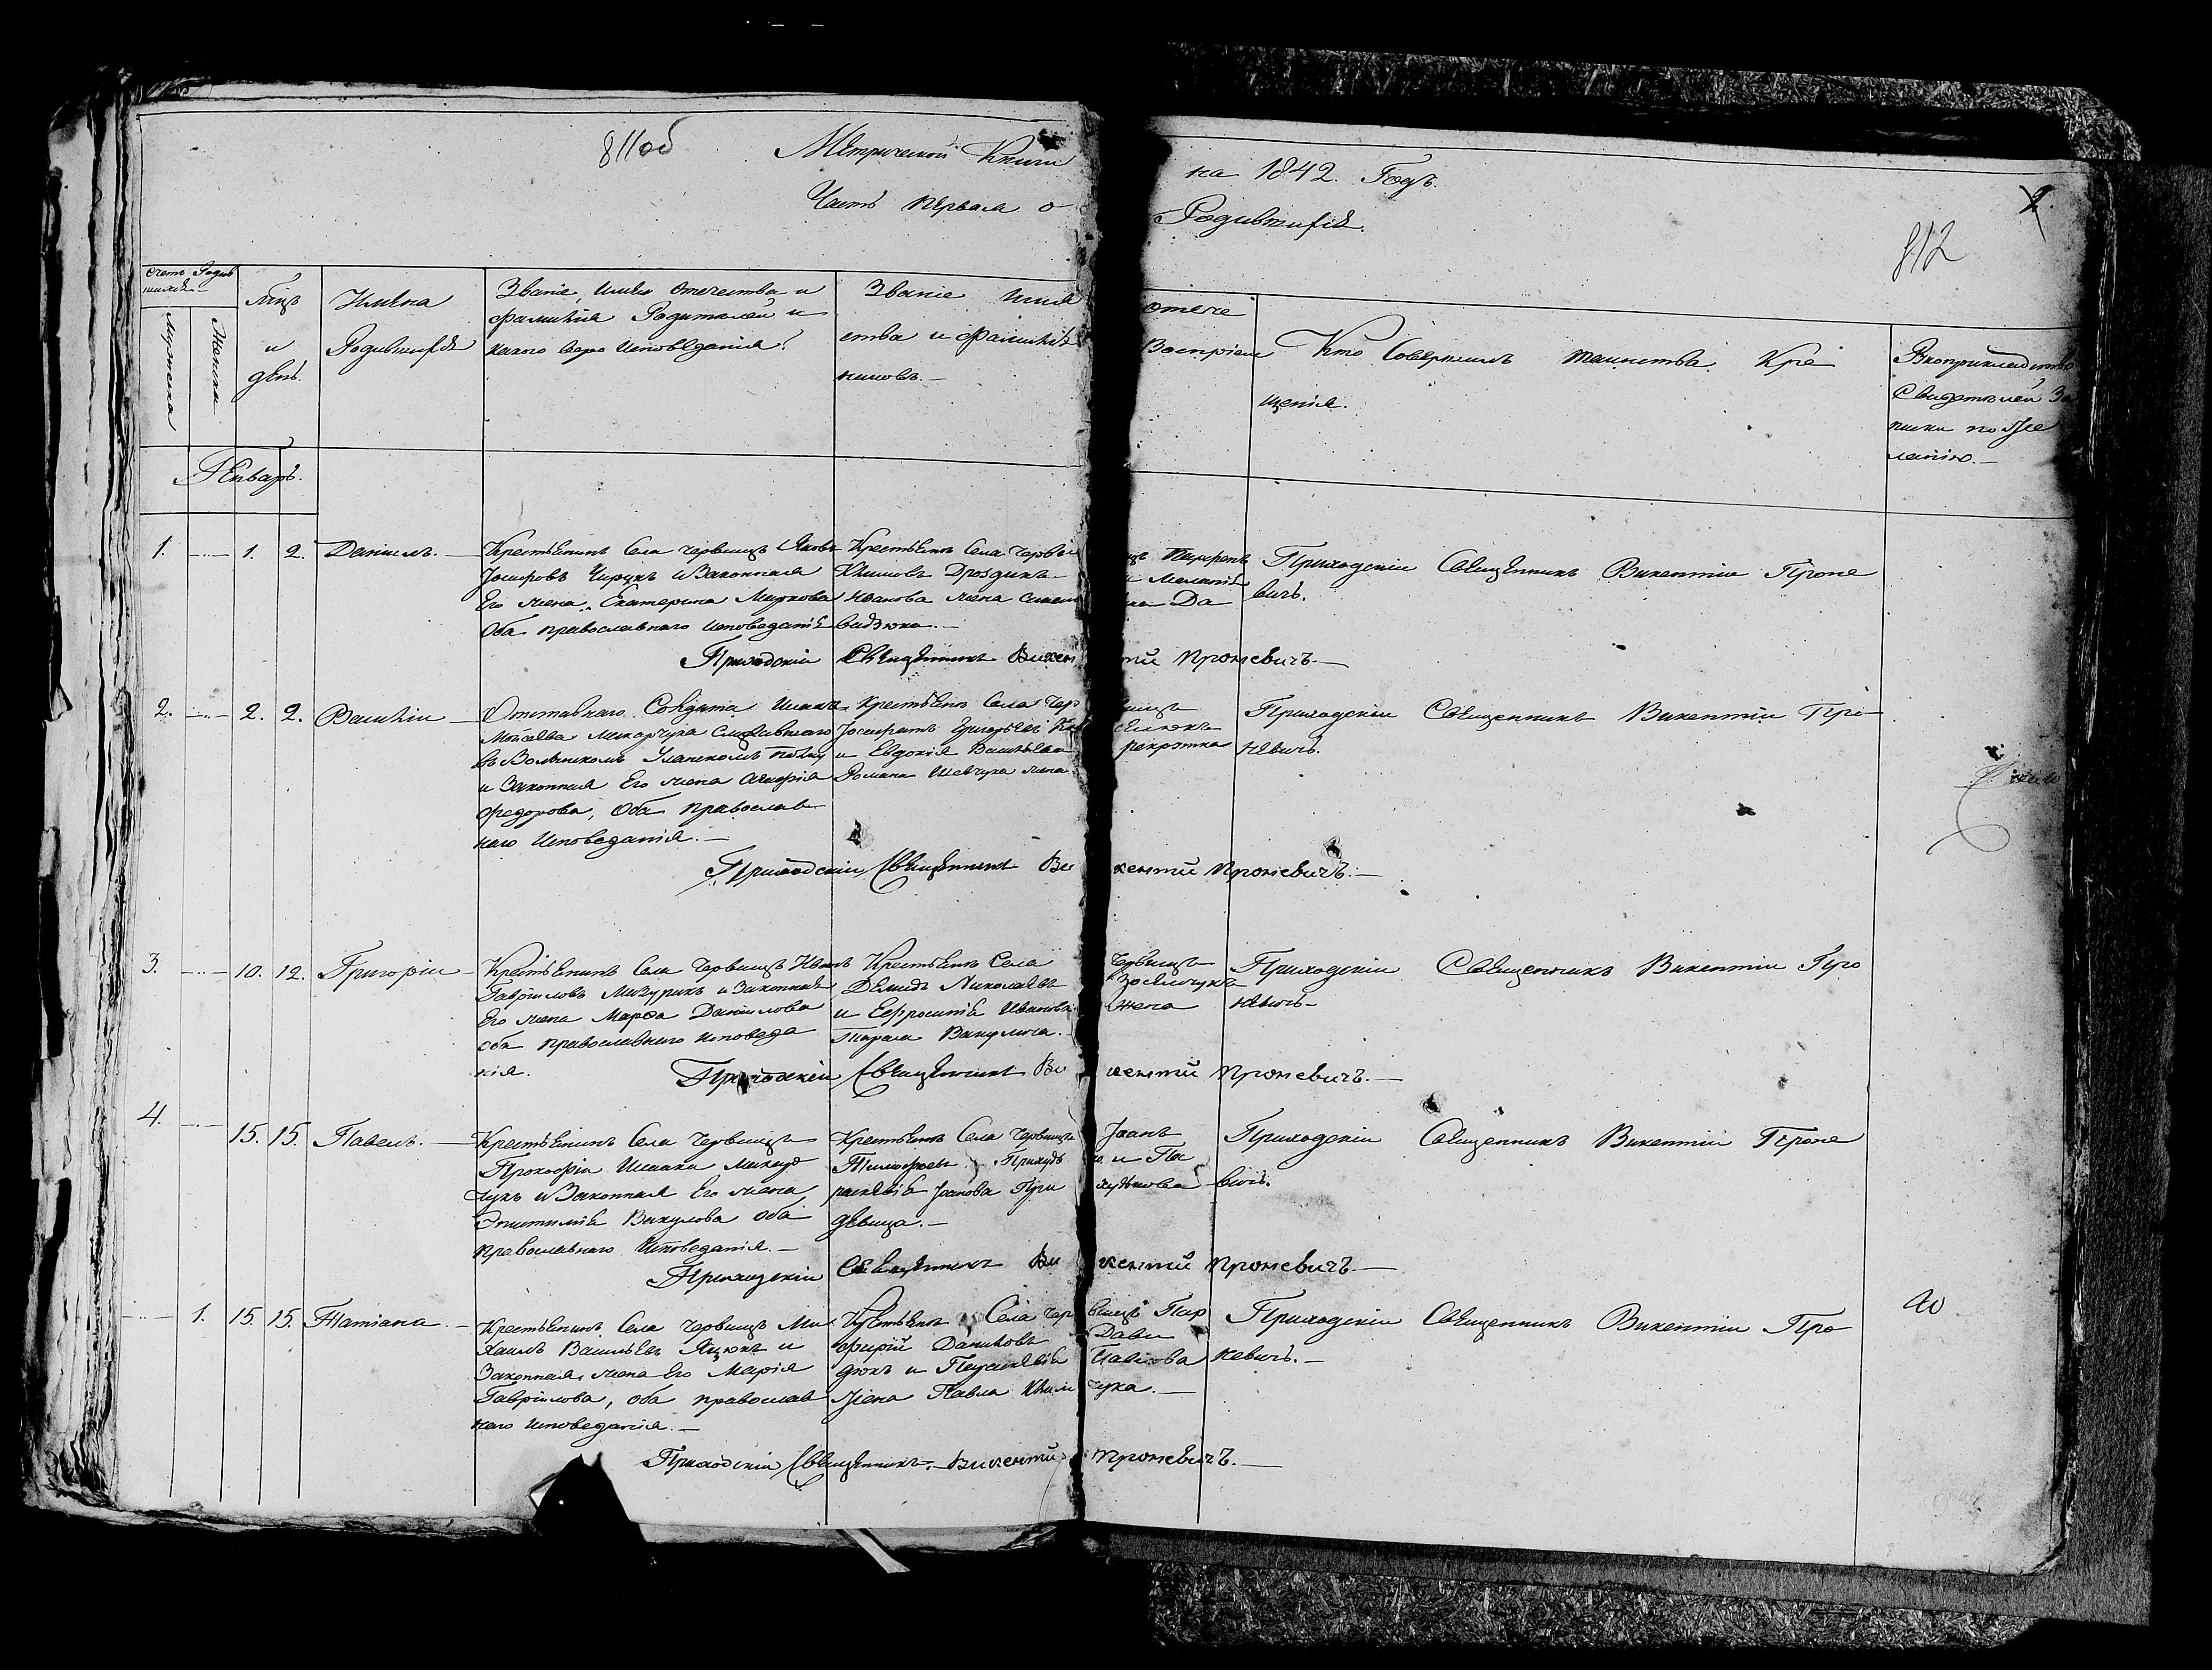 811об
Метрической Книги на 1842. Годъ.
Часть первая о Родившихся.
812
Счетъ Родив
шихся
Мужеска
Женска
Мцъ
и
день.
Имена
Родившихся
Званіе, Имя Отечества и
Фамилія Родителей и
какого Вероисповѣданія.
Званіе Имя Отече
ства и Фамилія Воспріем
никовъ.—
Кто Совершилъ таинства Кре
щенія.
Рукоприкладство
Свидѣтелей За
писки по Же
ланію.—
Генварь.
1. 1. 2. Даніилъ.
Крестьянинъ Села Червищъ Яковъ
Іосифовъ и Законная
Его жена Екатерина Маркова
Оба православнаго исповеданія
Крестьянъ Села Червищъ
Климовъ Дроздикъ и Меланія
Иванова жена Да
видзюка.—
Приходскій Священникъ Викентій Проне
вичъ.
Приходскій Священникъ Викентій Проневичъ.—
2. 2. 2. Василій
Отставнаго Солдата Исаака
Мойсеева Макарчука
въ Волынскомъ Уланскомъ полку
и Законная Его жена Агафія
Федорова, Оба Православ
наго Исповеданія.—
Крестьянъ Села Червищъ
Іосифатъ Григорьевъ
и Евдокія Васильева рекрутка
Романа Шевчука жена
Приходскій Священникъ Викентій Про
невичъ.
Приходскій Священникъ Викентій Проневичъ.—
3. 10. 12. Григорій
Крестьянинъ Села Червищъ Иванъ
Гавріиловъ Мазурикъ и Законная
Его жена Марфа Даніилова
оба православнаго исповеда
нія.
Крестьянъ Села Червищъ
Демидъ Николаевъ
и Ефросинія Иванова жена
Тараса Вакулича.—
Приходскій Священникъ Викентій Про
невичъ
Приходскій Священникъ Викентій Проневичъ.—
4. 15. 15. Павелъ.
Крестьянинъ Села Червищъ
Прокофій Исаака
и Законная Его жена,
Вакулова оба
православнаго Исповеданія.—
Крестьянъ Села Червищъ Іоанъ
Тимофеевъ и Па
раскевія Іоанова
девица.—
Приходскій Священникъ Викентій Проне
вичъ.
Приходскій Священникъ Викентій Проневичъ.—
1. 15. 15. Татіана.
Крестьянинъ Села Червищъ Ми
хаилъ Васильевъ Яцюкъ и
Законная жена Его Марія
Гавріилова, оба православ
наго исповеданія.—
Крестьянъ Села Червищъ Пар
фирій Даниловъ Дави
дюкъ и Параскевія Павлова
Жена Павла Климчука.—
Приходскій Священникъ Викентій Про
невичъ.—
Приходскій Священникъ Викентій Проневичъ.—